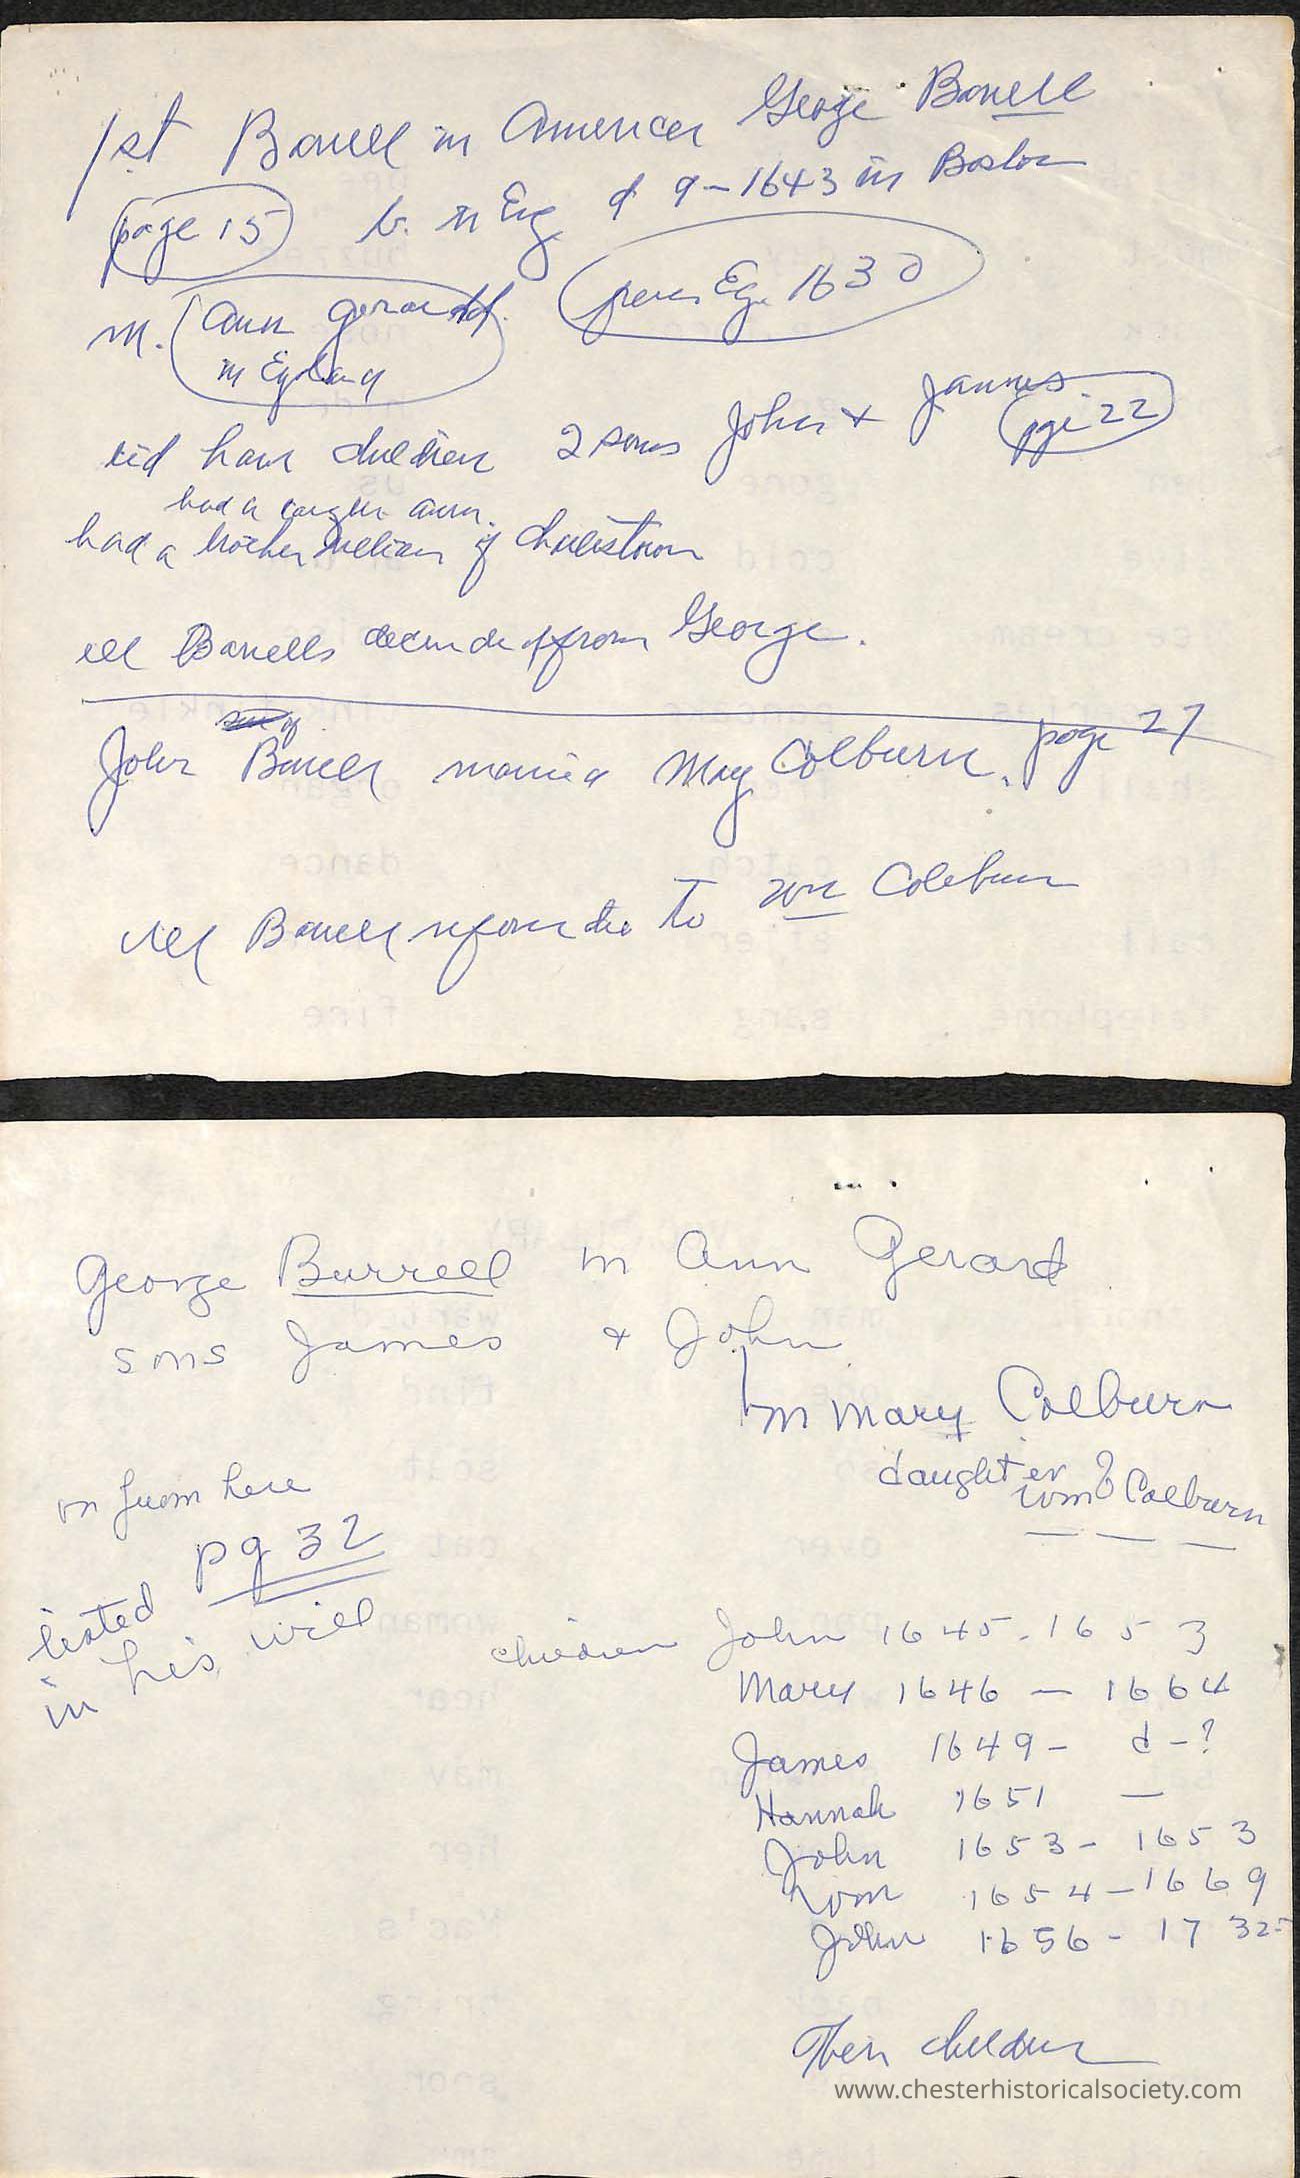 1st Bowell in American George Bowell
page 15 b. in Eng d 9-1643 in Boston
m. Ann Gerard. Eng. 1630
in England
did have children 2 sons John + James pg 22
had a Ann.
had a brother William of Charlestown
all Bowells from George.
John Bowell married May Colburn. page 27
all Bowell to Wm Coleburn
George Burrell m Ann Gerard
sons James + John
m Mary Colburn
daughter of
Wm Colburn
on from here
pg 32
listed
in his will
children John 1645-1653
Mary 1646 — 1664
James 1649- d-?
Hannah 1651 —
John 1653- 1653
Wm 1654-1669
John 1656- 1732
Their children
www.chesterhistoricalsociety.com